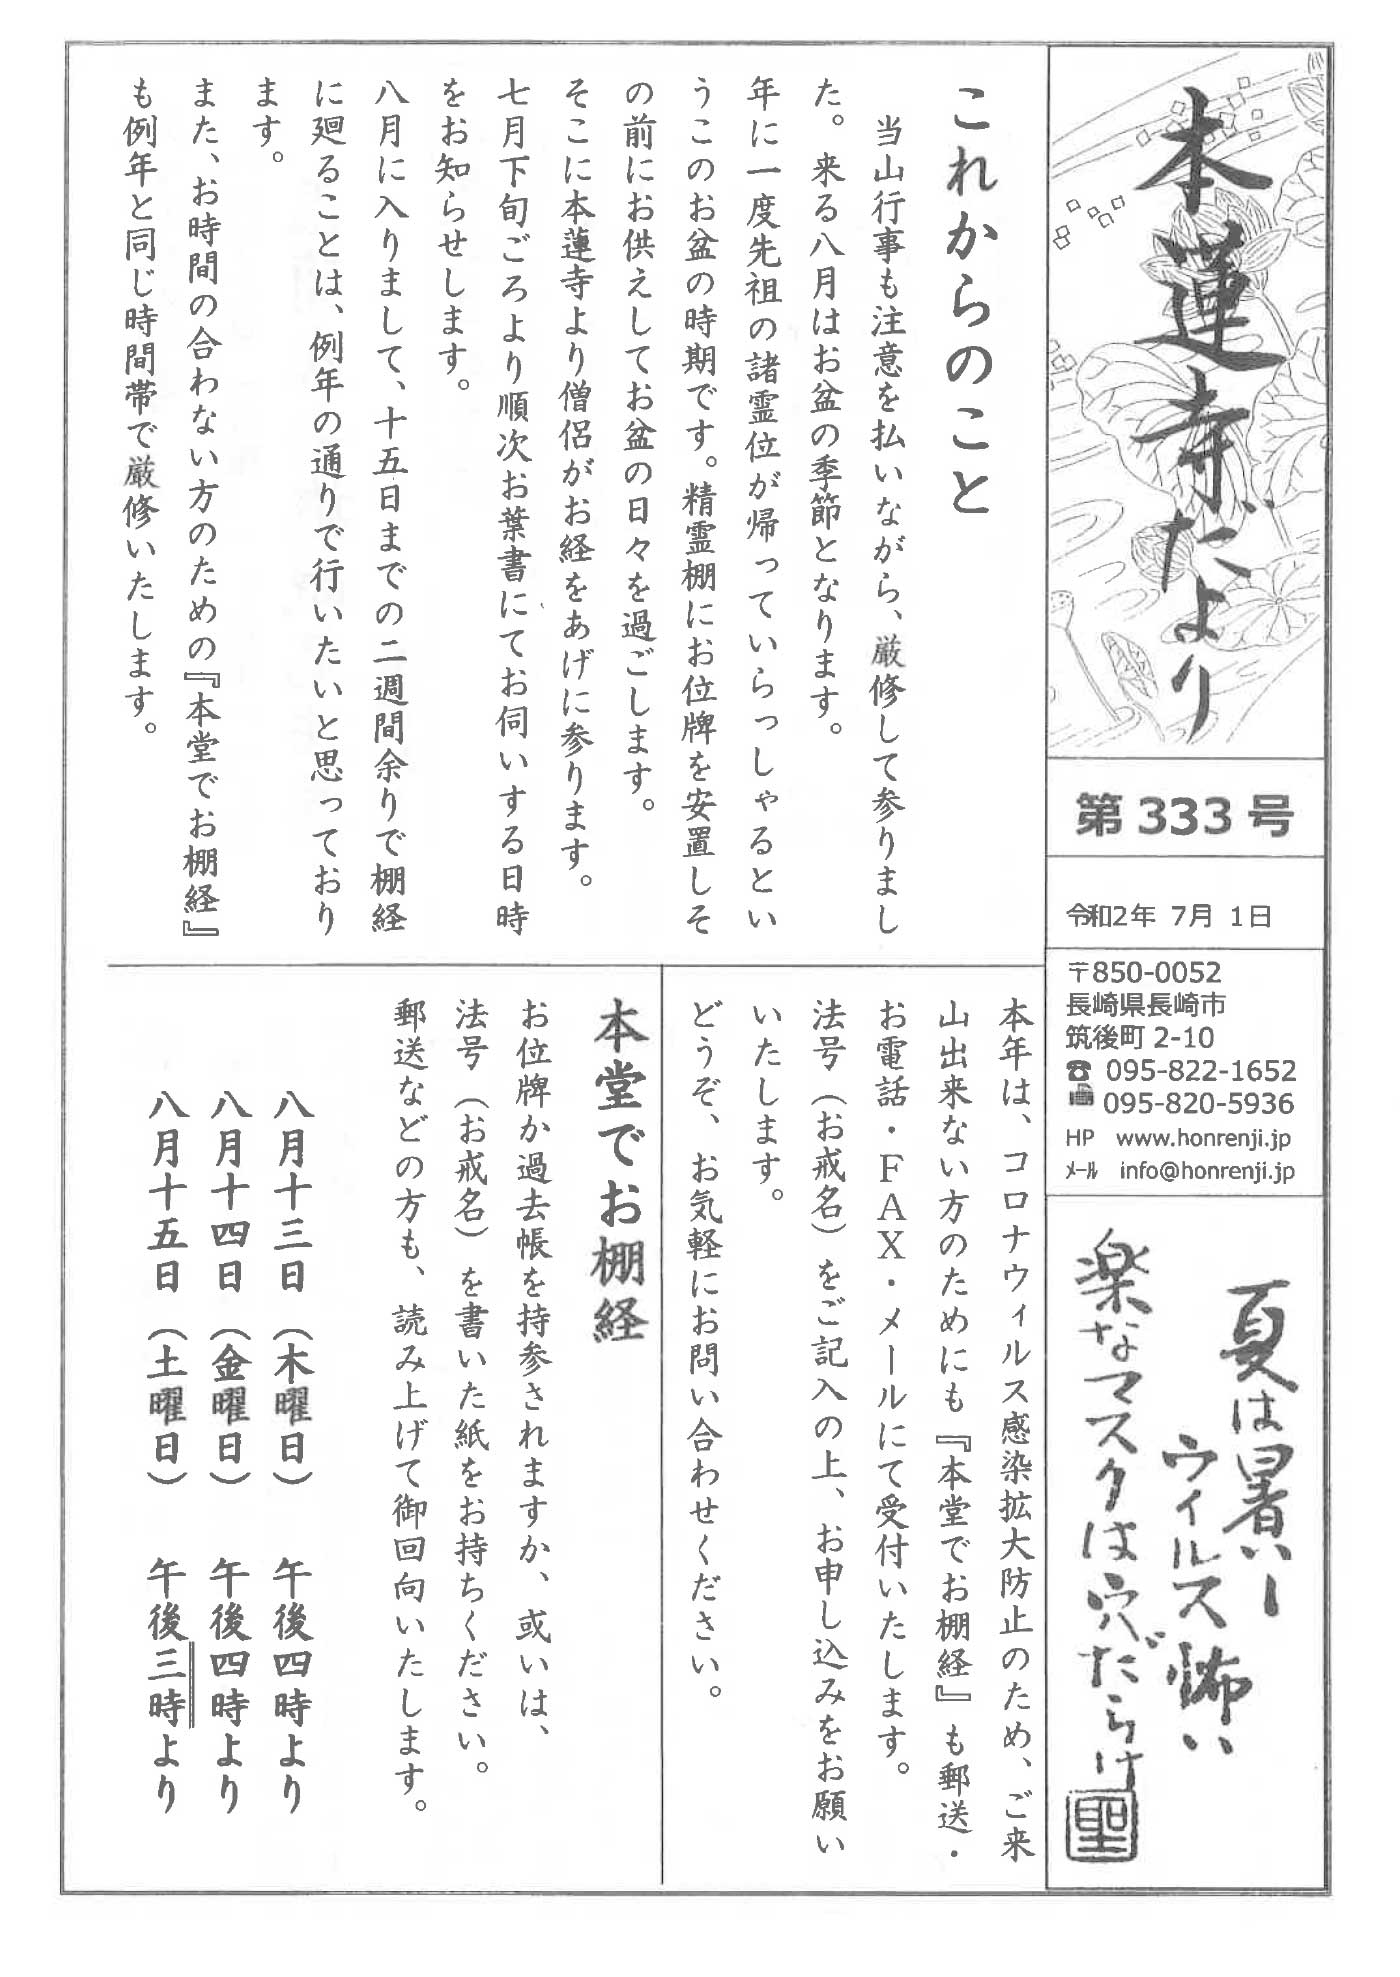 本蓮寺だより
第333号
令和2年 7月 1日
〒850-0052
長崎県長崎市
筑後町 2-10
☎ 095-822-1652
095-820-5936
HP www.honrenji.jp
メール info@honrenji.jp
夏は暑いー
ウィルス怖い
楽なマスクは穴だらけ
聖
これからのこと
当山行事も注意を払いながら、厳修して参りまし
た。来る八月はお盆の季節となります。
年に一度先祖の諸霊位が帰っていらっしゃるとい
うこのお盆の時期です。精霊棚にお位牌を安置しそ
の前にお供えしてお盆の日々を過ごします。
そこに本蓮寺より僧侶がお経をあげに参ります。
七月下旬ごろより順次お葉書にてお伺いする日時
をお知らせします。
八月に入りまして、十五日までの二週間余りで棚経
に廻ることは、例年の通りで行いたいと思っており
ます。
また、お時間の合わない方のための『本堂でお棚経』
も例年と同じ時間帯で厳修いたします。
本年は、コロナウィルス感染拡大防止のため、ご来
山出来ない方のためにも『本堂でお棚経』も郵送・
お電話・FAX・メールにて受付いたします。
法号（お戒名）をご記入の上、お申し込みをお願い
いたします。
どうぞ、お気軽にお問い合わせください。
本堂でお棚経
お位牌か過去帳を持参されますか、或いは、
法号（お戒名）を書いた紙をお持ちください。
郵送などの方も、読み上げて御回向いたします。
八月十三日（木曜日） 午後四時より
八月十四日（金曜日） 午後四時より
八月十五日（土曜日） 午後三時より